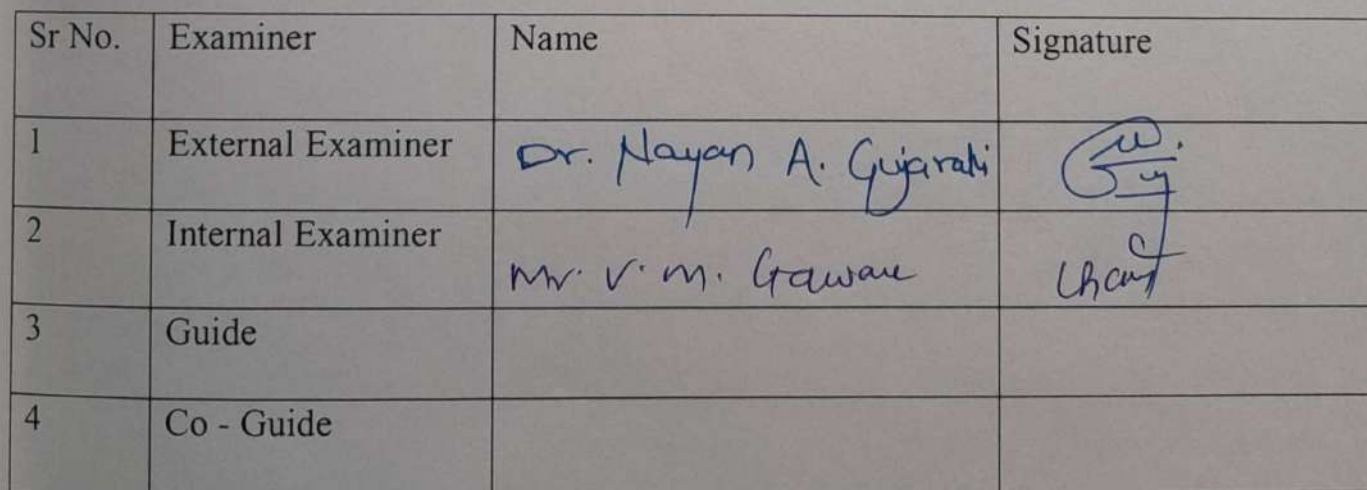 Sr No. Examiner Name Signature
1 External Examiner Dr. Nayan A. Gujarati
2 Internal Examiner Mr. V. M. Gaware
3 Guide
4 Co - Guide